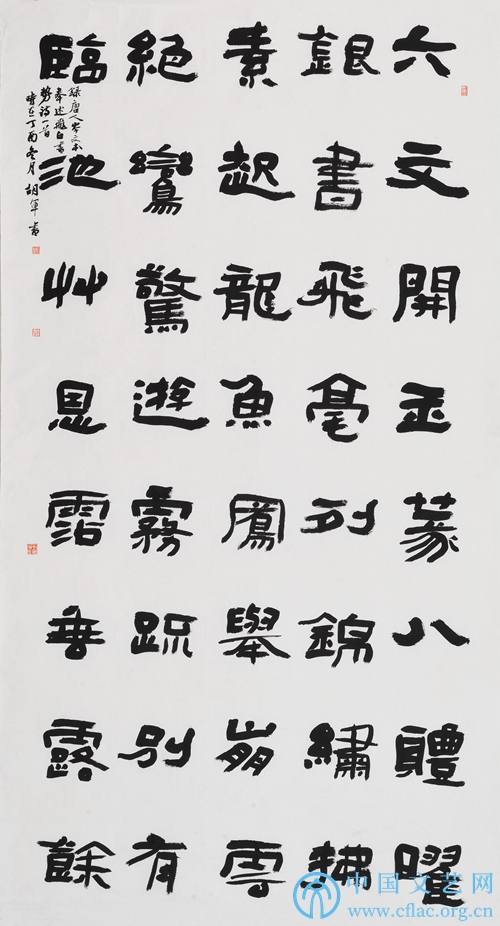 六文開玉篆八體曜
銀書飛毫列錦繡拂
素起龍魚鳳舉崩雲
絕鸞驚遊霧疏別有
臨池艸恩霑垂露餘
錄唐人岑文本
奉述飛白書
勢詩一首
時在丁酉冬月胡軍書
中国文艺网
www.cflac.org.cn